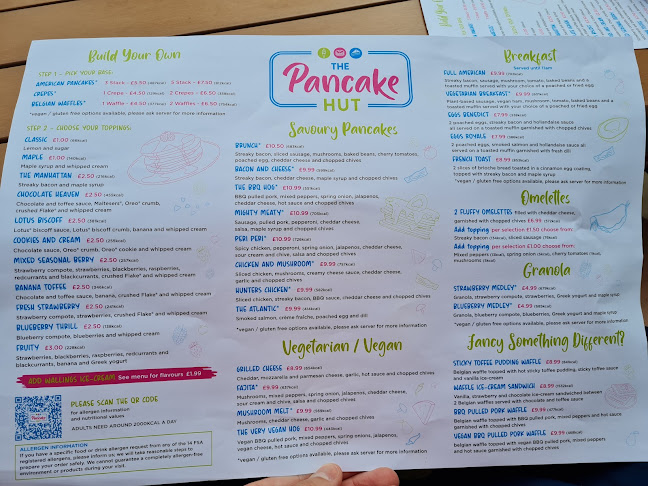 Build Your Own
STEP 1 - PICK YOUR BASE:
AMERICAN PANCAKES* 3 Stack - £5.50 5 Stack - £7.50
CREPES* 1 Crepe - £4.50 2 Crepes - £6.50
BELGIAN WAFFLES* 1 Waffle - £4.50 2 Waffles - £6.50
*vegan / gluten free options available, please ask server for more information
STEP 2 - CHOOSE YOUR TOPPINGS:
CLASSIC £1.00
Lemon and sugar
MAPLE £1.00
Maple syrup and whipped cream
THE MANHATTAN £2.50
Streaky bacon and maple syrup
CHOCOLATE HEAVEN £2.50
Chocolate and toffee sauce, Maltesers, Oreo® crumb,
crushed Flake® and whipped cream
LOTUS BISCOFF £2.50
Lotus® biscoff sauce, Lotus® biscoff crumb, banana and whipped cream
COOKIES AND CREAM £2.50
Chocolate sauce, Oreo® crumb, Oreo® cookie and whipped cream
MIXED SEASONAL BERRY £2.50
Strawberry compote, strawberries, blackberries, raspberries,
redcurrants and blackcurrants, crushed Flake® and whipped cream
BANANA TOFFEE £2.50
Chocolate and toffee sauce, banana, crushed Flake® and whipped cream
FRESH STRAWBERRY £2.50
Strawberry compote, strawberries, crushed Flake® and whipped cream
BLUEBERRY THRILL £2.50
Blueberry compote, blueberries and whipped cream
FRUITY £3.00
Strawberries, blackberries, raspberries, redcurrants and
blackcurrants, banana and Greek yogurt
ADD WALLINGS ICE-CREAM See menu for flavours £1.99
PLEASE SCAN THE QR CODE
for allergen information
and nutritional values
ADULTS NEED AROUND 2000KCAL A DAY
ALLERGEN INFORMATION
If you have a specific food or drink allergen request from any of the 14 FSA
registered allergens, please inform us; we will take reasonable steps to
prepare your order safely. We cannot guarantee a completely allergen-free
environment or products during your visit.
THE
Pancake
HUT
Savoury Pancakes
BRUNCH* £10.50
Streaky bacon, sliced sausage, mushrooms, baked beans, cherry tomatoes,
poached egg, cheddar cheese and chopped chives
BACON AND CHEESE* £9.99
Streaky bacon, cheddar cheese, maple syrup and chopped chives
THE BBQ HOG* £10.99
BBQ pulled pork, mixed peppers, spring onion, jalapenos,
cheddar cheese, hot sauce and chopped chives
MIGHTY MEATY* £10.99
Sausage, pulled pork, pepperoni, cheddar cheese,
salsa, maple syrup and chopped chives
PERI PERI* £10.99
Spicy chicken, pepperoni, spring onion, jalapenos, cheddar cheese,
sour cream and chive, salsa and chopped chives
CHICKEN AND MUSHROOM* £9.99
Sliced chicken, mushrooms, creamy cheese sauce, cheddar cheese,
garlic and chopped chives
HUNTERS CHICKEN*
Sliced chicken, streaky bacon, BBQ sauce, cheddar cheese and chopped chives
THE ATLANTIC* £9.99
Smoked salmon, crème fraîche, poached egg and dill
*vegan / gluten free options available, please ask server for more information
Vegetarian / Vegan
GRILLED CHEESE £8.99
Cheddar, mozzarella and parmesan cheese, garlic, hot sauce and chopped chives
FAJITA* £9.99
Mushrooms, mixed peppers, spring onion, jalapenos, cheddar cheese,
sour cream and chive, salsa and chopped chives
MUSHROOM MELT* £9.99
Mushrooms, cheddar cheese, garlic and chopped chives
THE VERY VEGAN HOG £10.99
Vegan BBQ pulled pork, mixed peppers, spring onions, jalapenos,
vegan cheese, hot sauce and chopped chives
*vegan / gluten free options available, please ask server for more information
Breakfast
Served until 11am
FULL AMERICAN £9.99
Streaky bacon, sausage, mushroom, tomato, baked beans and a
toasted muffin served with your choice of a poached or fried egg
VEGETARIAN BREAKFAST* £9.99
Plant-based sausage, vegan ham, mushroom, tomato, baked beans and a
toasted muffin served with your choice of a poached or fried egg
EGGS BENEDICT £7.99
2 poached eggs, streaky bacon and hollandaise sauce
all served on a toasted muffin garnished with chopped chives
EGGS ROYALE £7.99
2 poached eggs, smoked salmon and hollandaise sauce all
served on a toasted muffin garnished with fresh dill
FRENCH TOAST £8.99
2 slices of brioche bread toasted in a cinnamon egg coating,
topped with streaky bacon and maple syrup
*vegan / gluten free options available, please ask server for more information
Omelettes
2 FLUFFY OMELETTES filled with cheddar cheese,
garnished with chopped chives £6.99
Add topping per selection £1.50 choose from:
Streaky bacon, sliced sausage
Add topping per selection £1.00 choose from:
Mixed peppers, spring onion, cherry tomato,
mushrooms
Granola
STRAWBERRY MEDLEY* £4.99
Granola, strawberry compote, strawberries, Greek yogurt and maple syrup
BLUEBERRY MEDLEY* £4.99
Granola, blueberry compote, blueberries, Greek yogurt and maple syrup
*vegan / gluten free options available, please ask server for more information
Fancy Something Different?
STICKY TOFFEE PUDDING WAFFLE £8.99
Belgian waffle topped with hot sticky toffee pudding, sticky toffee sauce
and vanilla ice-cream
WAFFLE ICE-CREAM SANDWICH £8.99
Vanilla, strawberry and chocolate ice-cream sandwiched between
2 Belgian waffles served with chocolate and toffee sauce
BBQ PULLED PORK WAFFLE £9.99
Belgian waffle topped with BBQ pulled pork, mixed peppers and hot sauce
garnished with chopped chives
VEGAN BBQ PULLED PORK WAFFLE £9.99
Belgian waffle topped with vegan BBQ pulled pork, mixed peppers
and hot sauce garnished with chopped chives